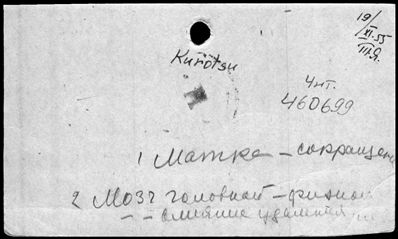 19/
XI.55
III.Я.
Kurotsu
Чит.
460699
1 Матка – сокращен
2 Мозг головной – физиол
– – влияние удаления